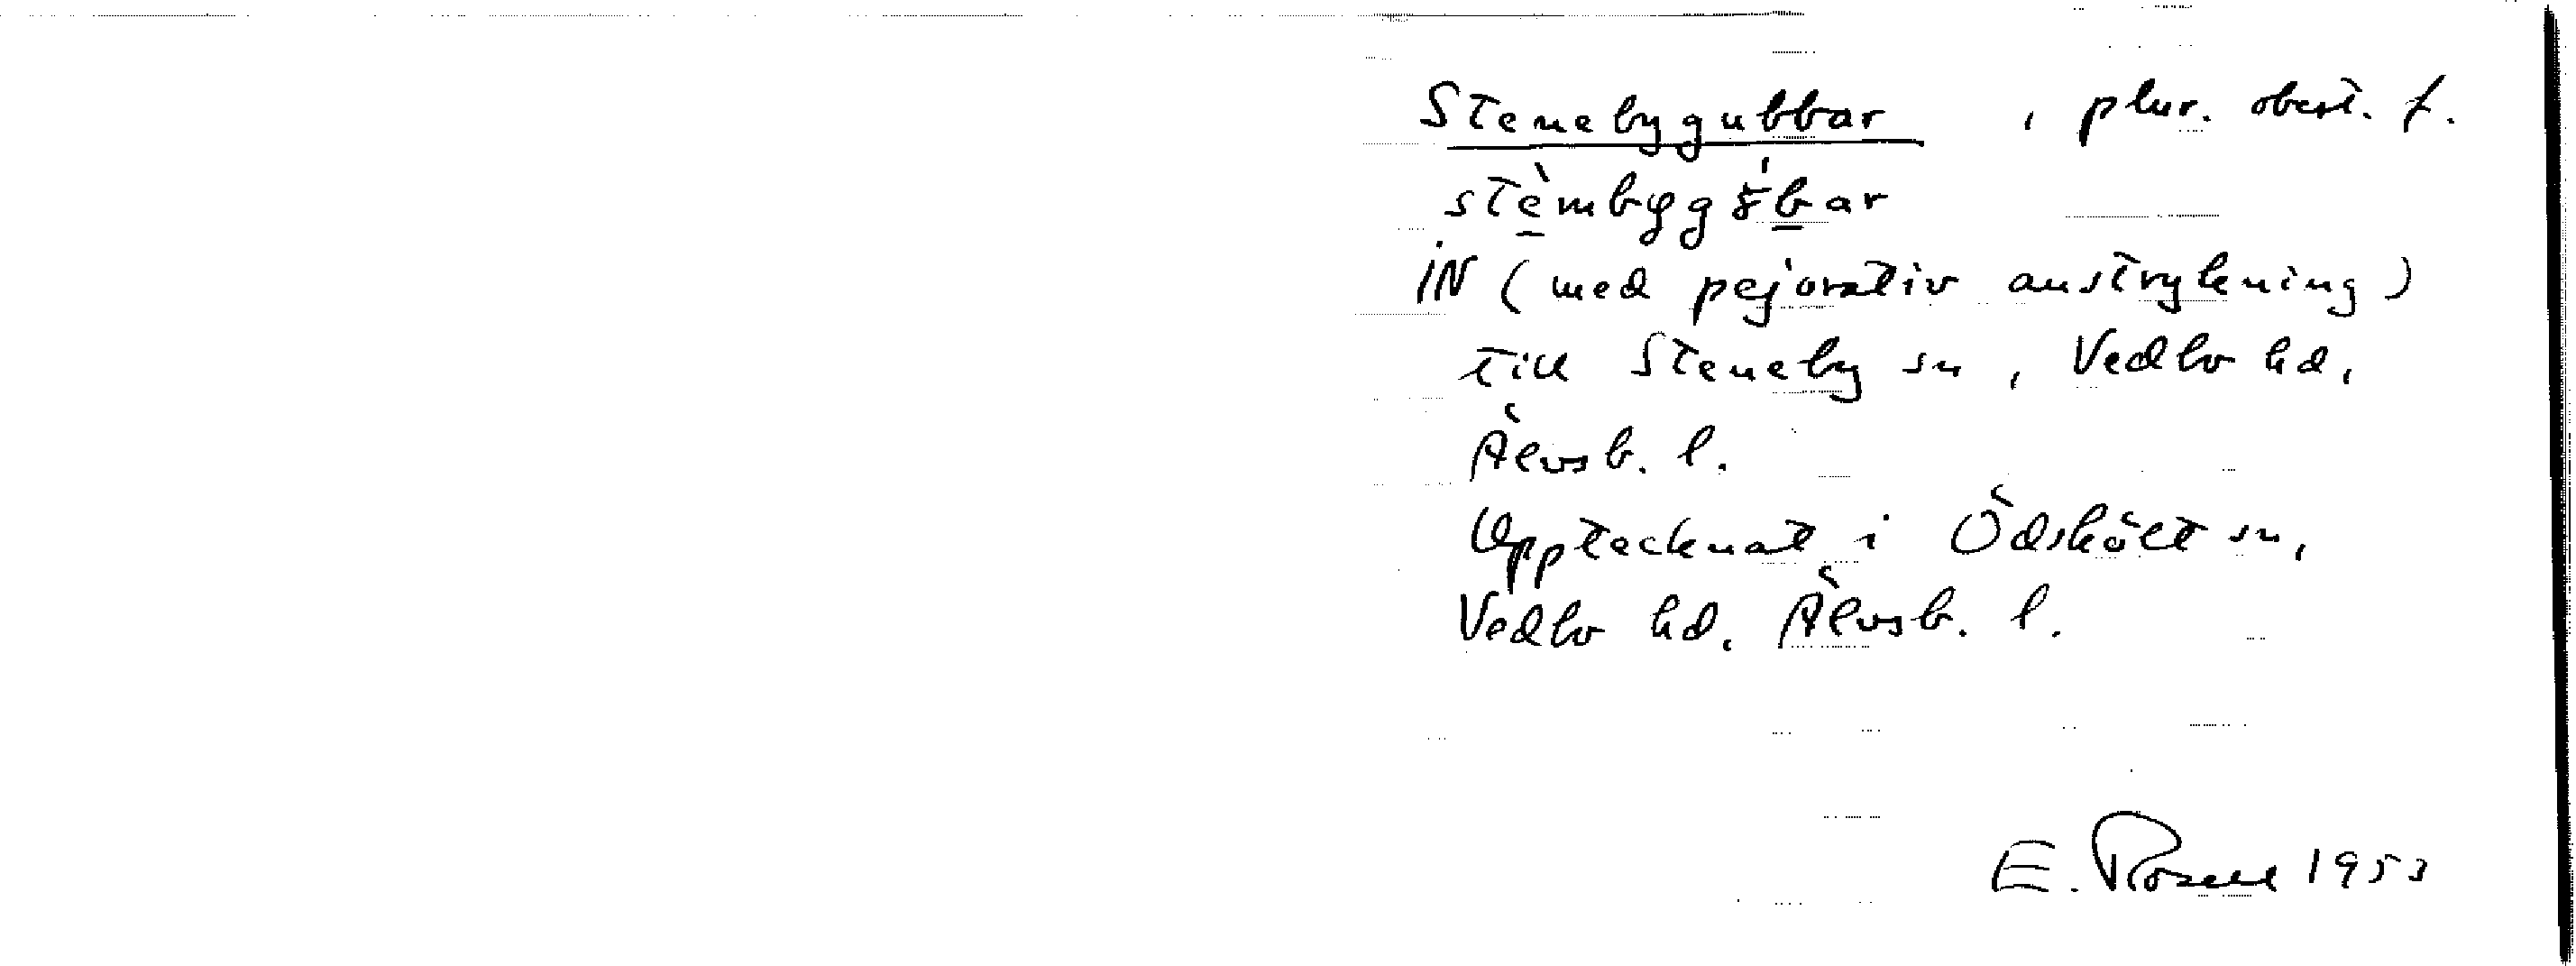 Stenebygubbar, plur. obest. f.
stèmbygɣ́bar
iN (med pejorativ anstrykning)
till Steneby sn, Vedbo hd,
Älvsb. l.
Upptecknat i Ödskölt sn,
Vedbo hd. Älvsb. l.
E. Rosell 1953